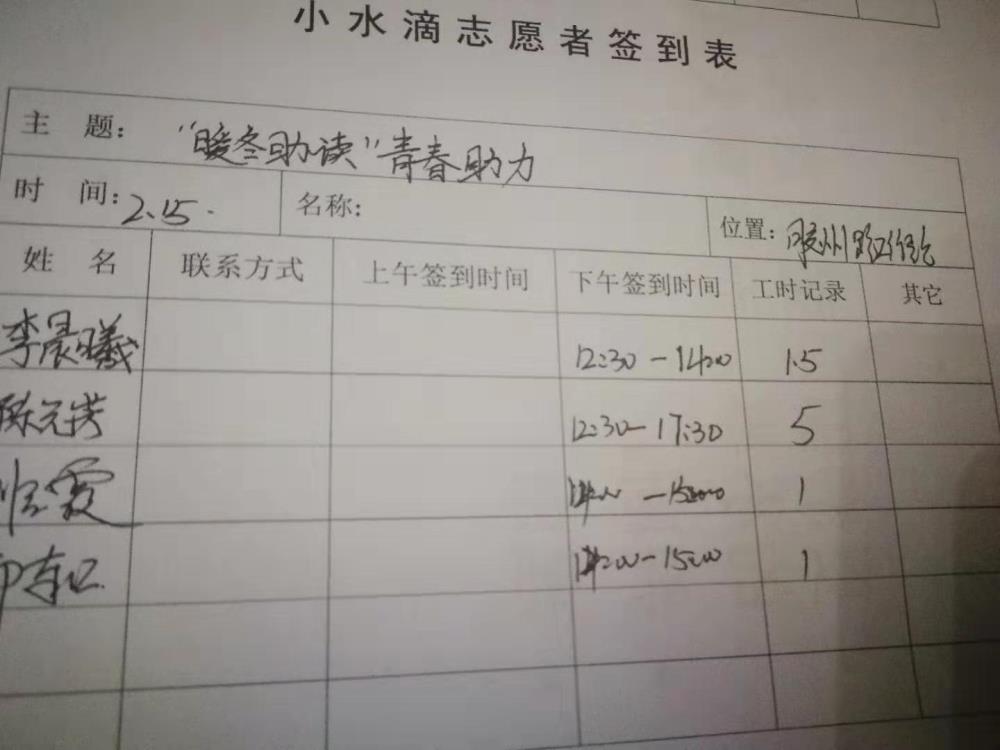 小水滴志愿者签到表
主 题： “暖冬助读”青春助力
时 间：2.15. 名称： 位置：胶州路
姓 名 联系方式 上午签到时间 下午签到时间 工时记录 其它
李晨曦 12:30-14:00 1.5
陈元芳 12:30-17:30 5
霞 14:00-15:00 1
14:00-15:00 1